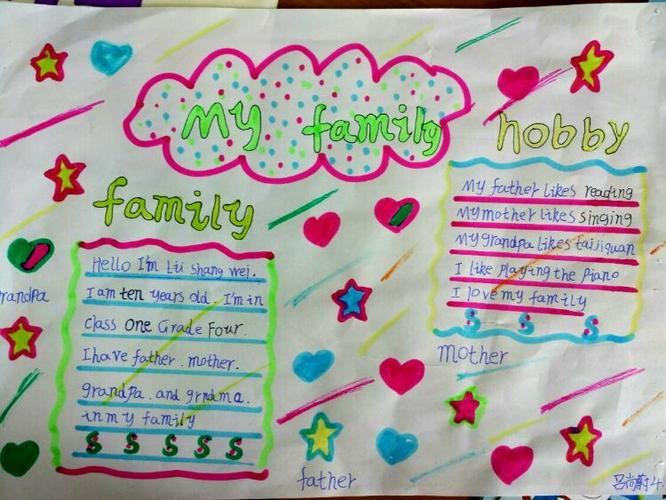 My family
hobby
family
My father likes reading
My mother likes singing
My grandpa likes taijiquan
I like playing the piano
I love my family
Hello I'm Lü shang wei.
I am ten years old. I'm in
class one Grade Four.
I have father. mother.
grandpa. and grndma.
in my family
randpa
mother
father
吕尚蔚4.